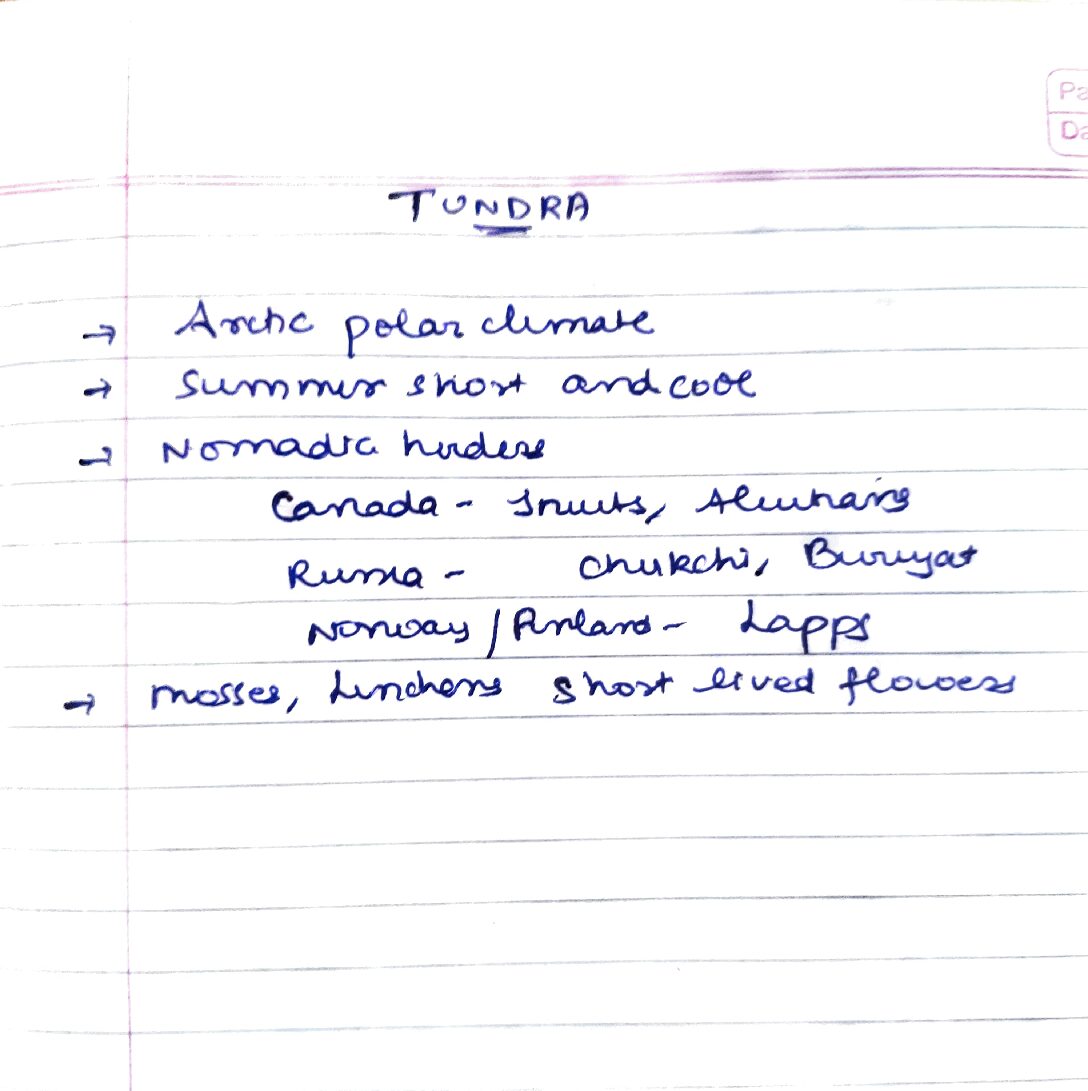 Pa
Da
TUNDRA
→ Arctic polar climate
→ Summer short and cool
→ Nomadic herders
Canada - Inuits, Aleutians
Russia - Chukchi, Buruyat
Norway / Finland - Lapps
→ Mosses, Linchens short lived flowers